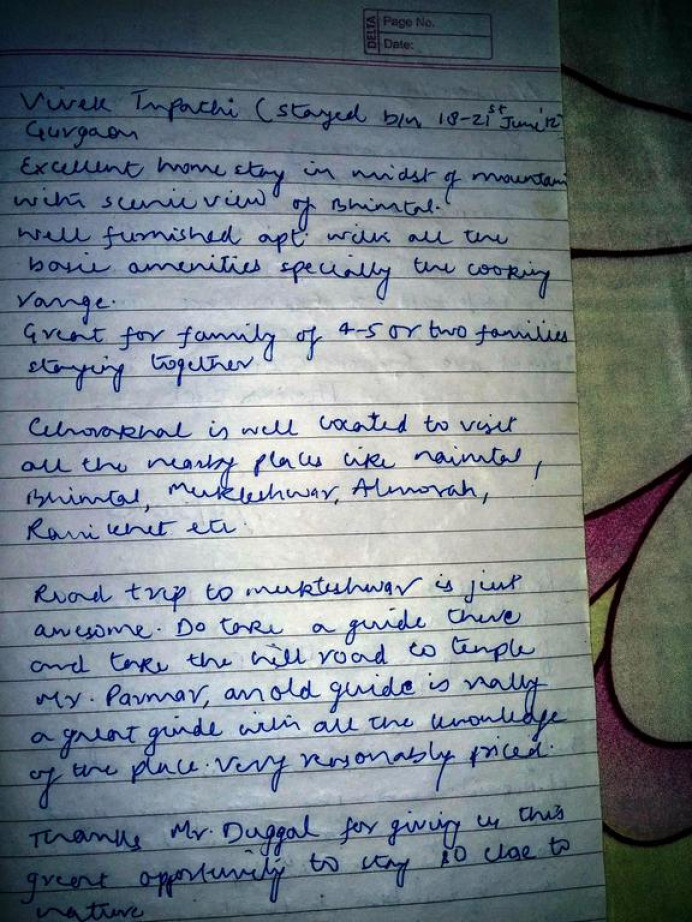 DELTA
Page No.
Date:
Vivek Tripathi (stayed b/n 18-21st June'12
Gurgaon
Excellent home stay in midst of mountain
with scenic view of Bhimtal.
Well furnished apt. with all the
basic amenities specially the cooking
range.
Great for family of 4-5 or two families
staying together
is well located to visit
all the nearby places like nainital,
Bhimtal, Mukteshwar, Almorah,
Ranikhet etc.
Road trip to mukteshwar is just
awesome. Do take a guide there
and take the hill road to temple
Mr. Parmar, an old guide is really
a great guide with all the knowledge
of the place. Very reasonably priced.
Thanks Mr. Duggal for giving us this
great opportunity to stay so close to
nature